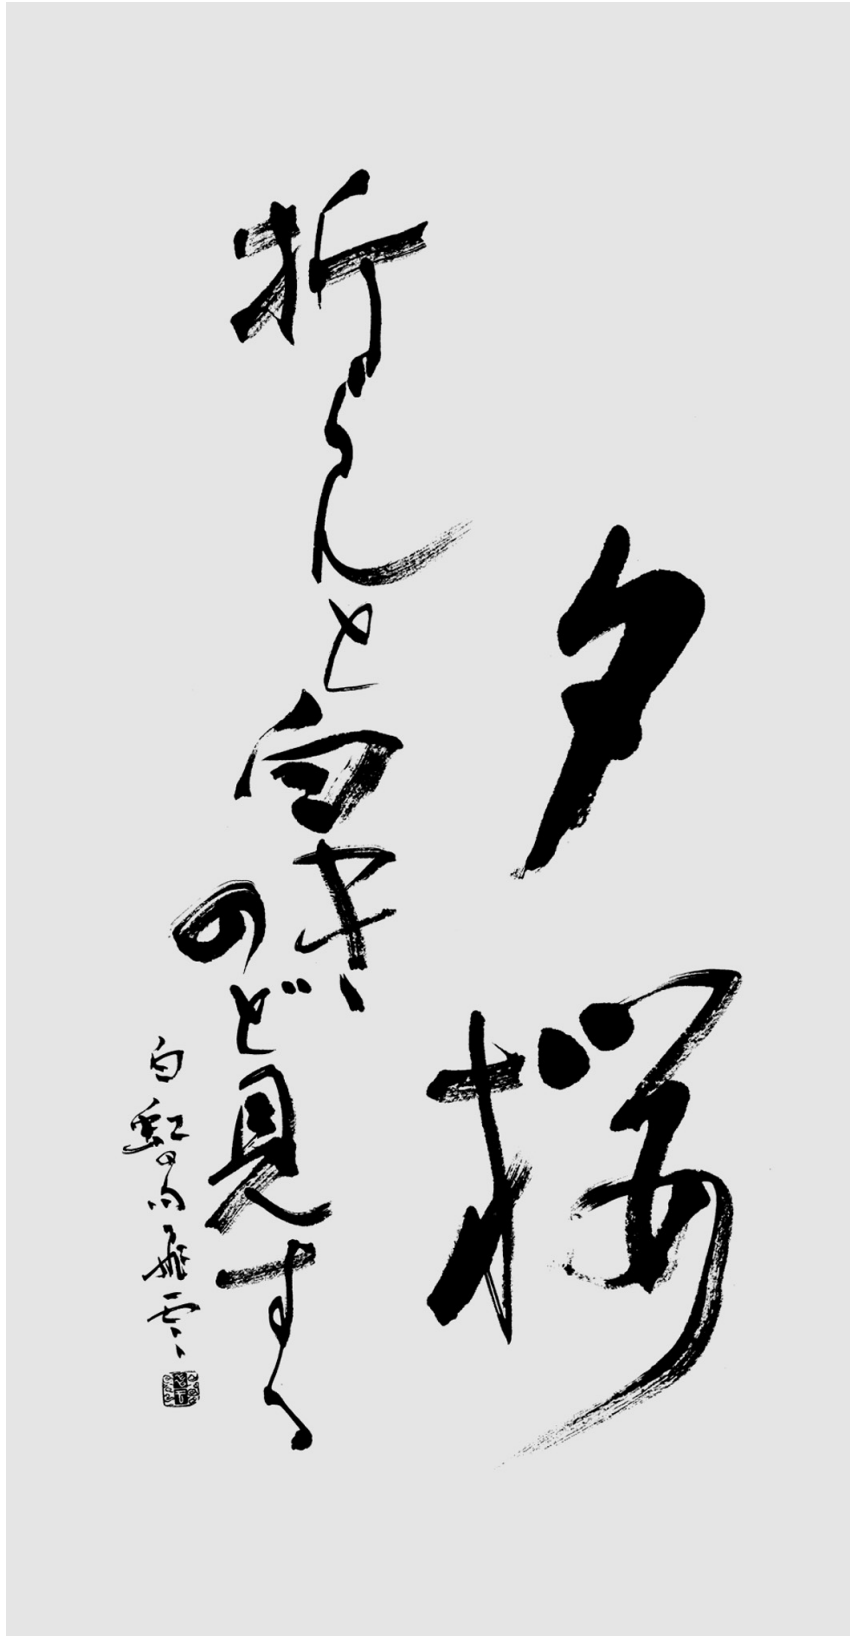 夕桜
折らんと白き
のど見する
白虹の句 飛雲